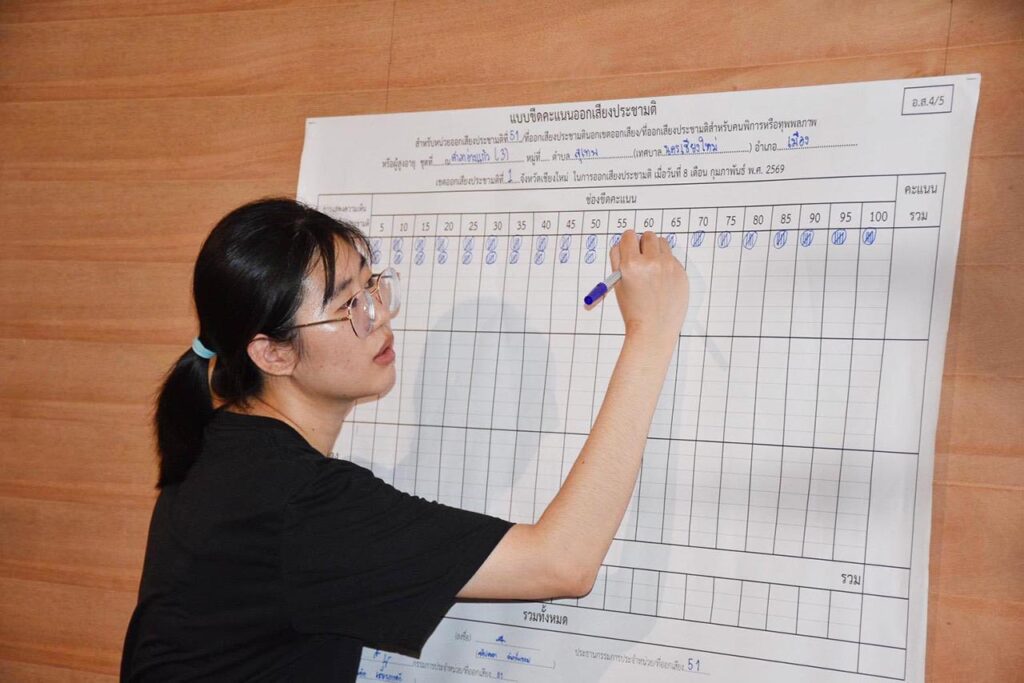 อ.ส.4/5
แบบขีดคะแนนออกเสียงประชามติ
สำหรับหน่วยออกเสียงประชามติที่ 51 /ที่ออกเสียงประชามตินอกเขตออกเสียง/ที่ออกเสียงประชามติสำหรับคนพิการหรือทุพพลภาพ
หรือผู้สูงอายุ ชุดที่..... ณ (3) หมู่ที่..... ตำบล สุเทพ (เทศบาล นครเชียงใหม่) อำเภอ เมือง
เขตออกเสียงประชามติที่ 1 จังหวัดเชียงใหม่ ในการออกเสียงประชามติ เมื่อวันที่ 8 เดือน กุมภาพันธ์ พ.ศ. 2569
ช่องขีดคะแนน คะแนน
5 10 15 20 25 30 35 40 45 50 55 60 65 70 75 80 85 90 95 100 รวม
รวม
รวมทั้งหมด
(ลงชื่อ)
ประธานกรรมการประจำหน่วย/ที่ออกเสียง 51
กรรมการประจำหน่วย/ที่ออกเสียง 51